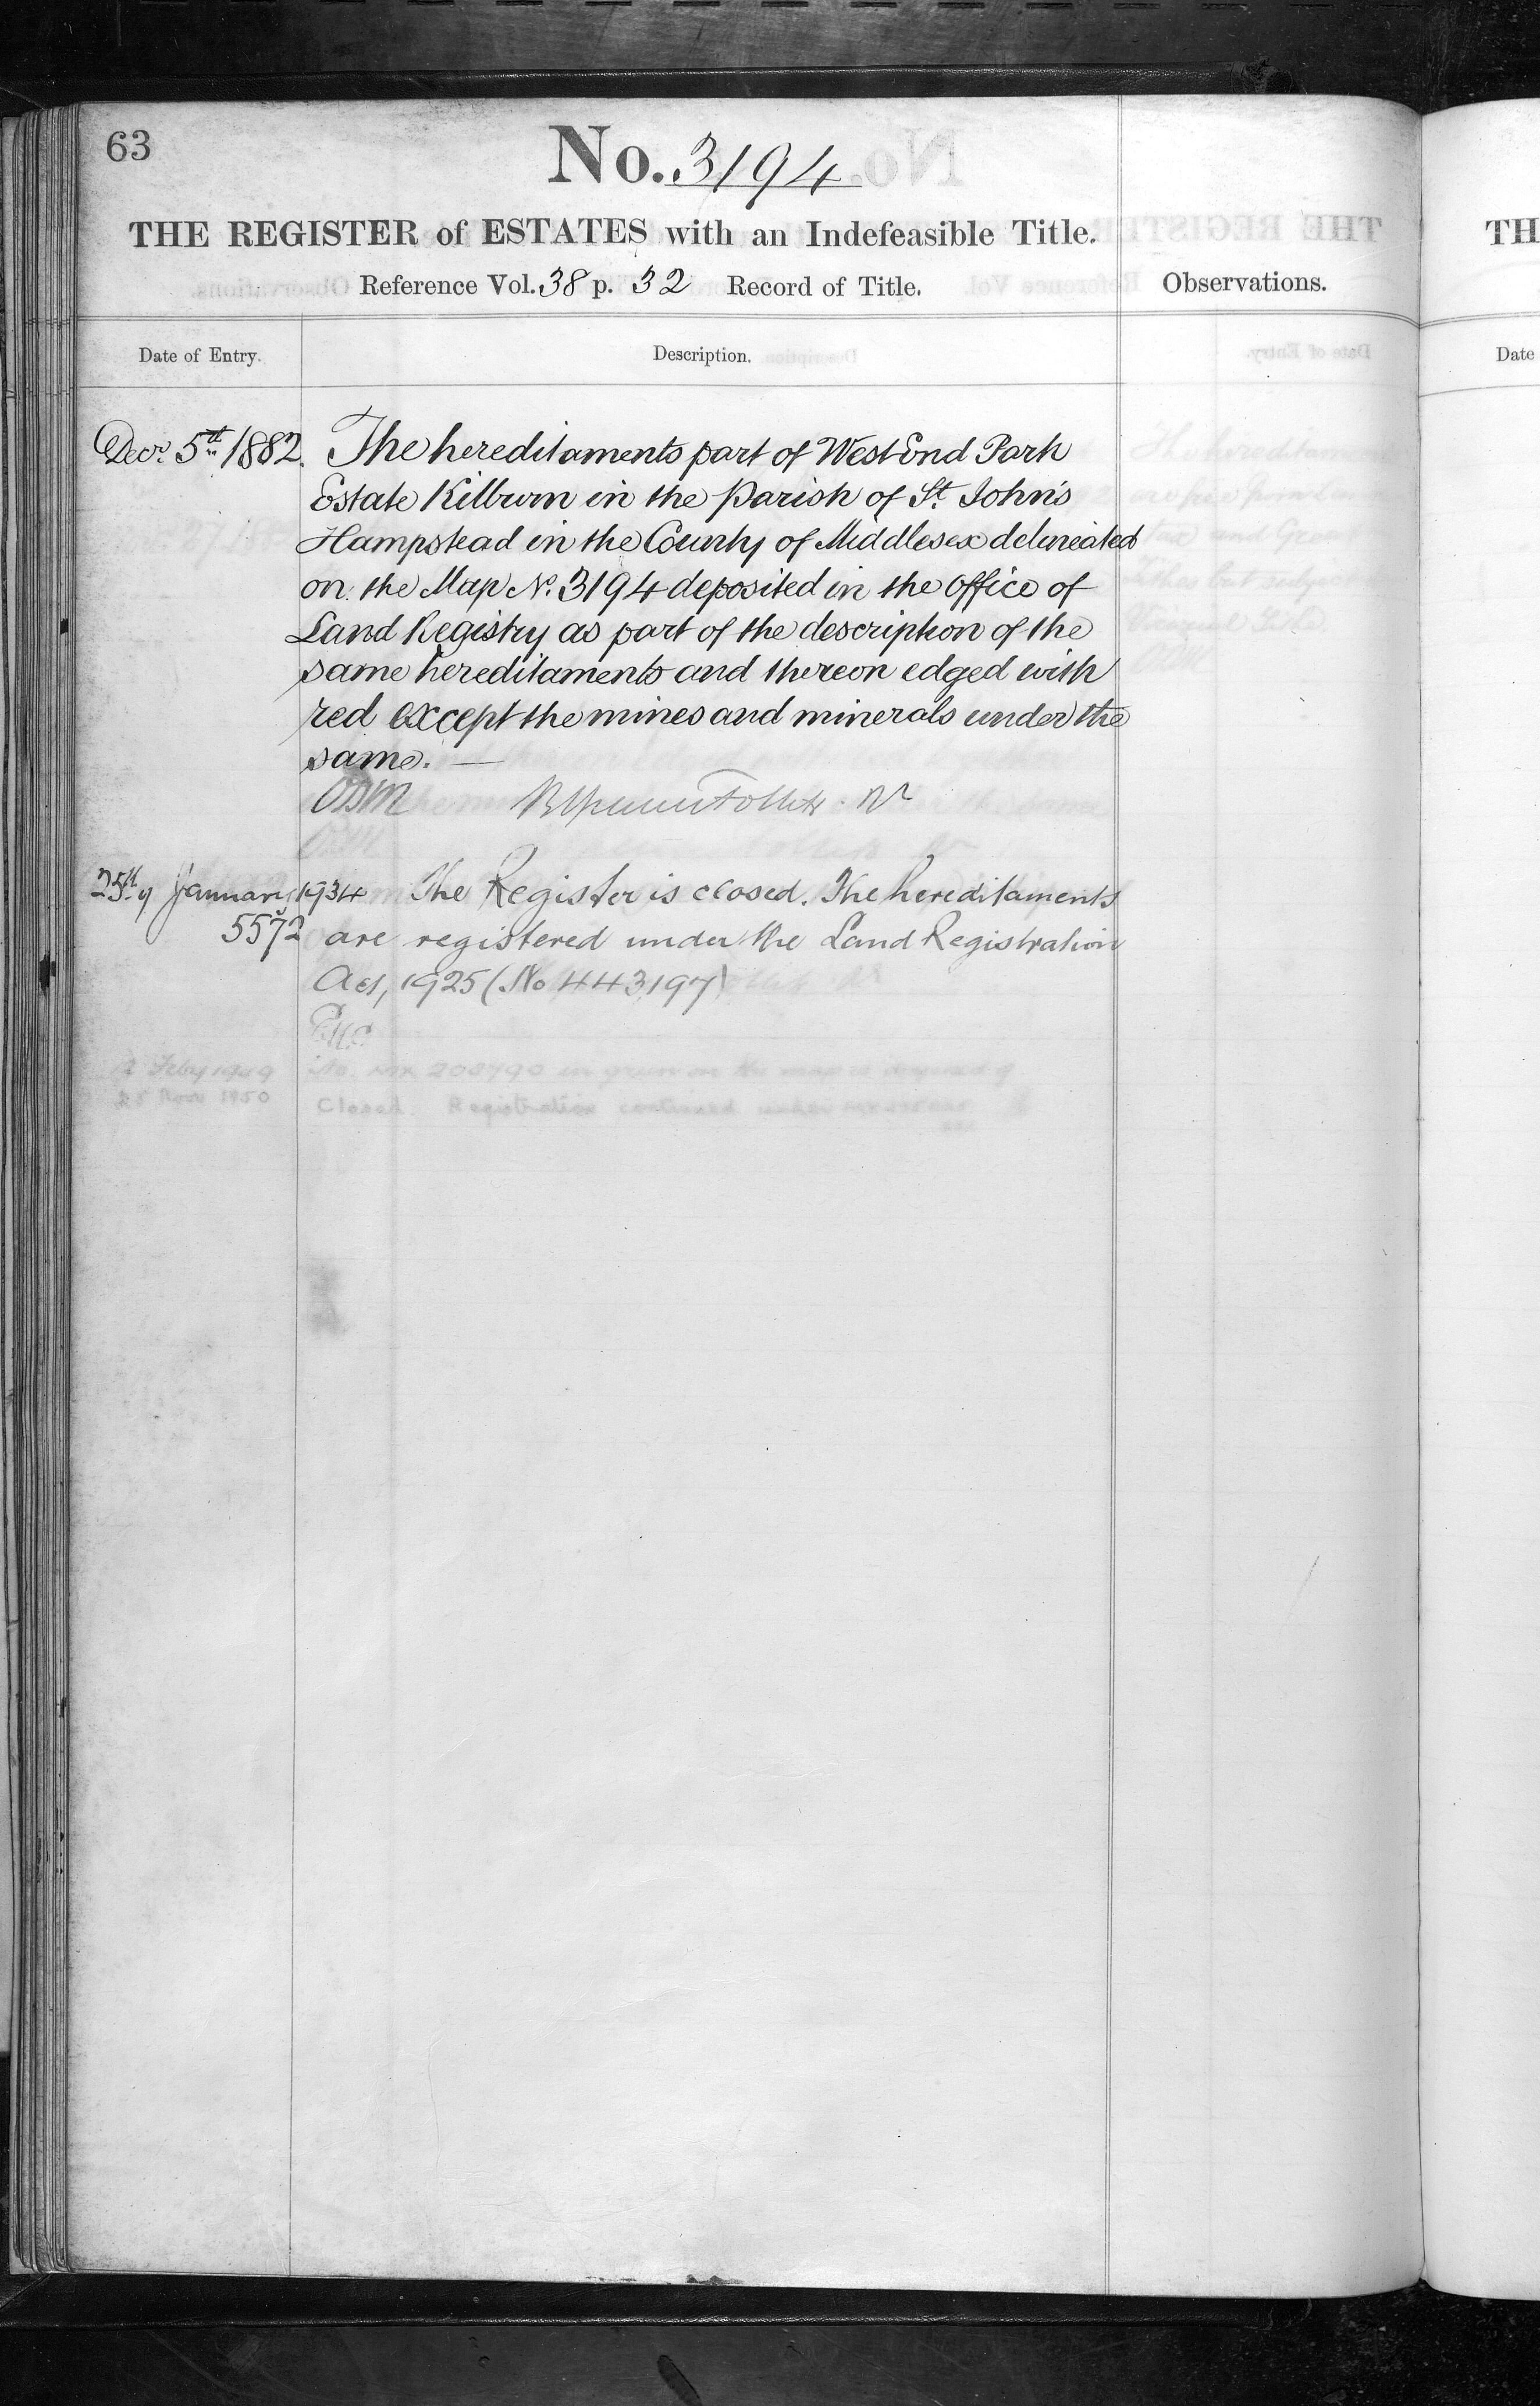 63
No. 3194
THE REGISTER of ESTATES with an Indefeasible Title.
Reference Vol. 38 p. 32 Record of Title.
Observations.
Date of Entry.
Description.
Decr. 5th 1882. The hereditaments part of West End Park
Estate Kilburn in the Parish of St. John's
Hampstead in the County of Middlesex delineated
on the Map No. 3194 deposited in the Office of
Land Registry as part of the description of the
same hereditaments and thereon edged with
red except the mines and minerals under the
same. —
25th of January 1934 The Register is closed. The hereditaments
5572 are registered under the Land Registration
Act, 1925 (No 443197)
Feby 1949
1950 Closed. Registration continued under
TH
Date